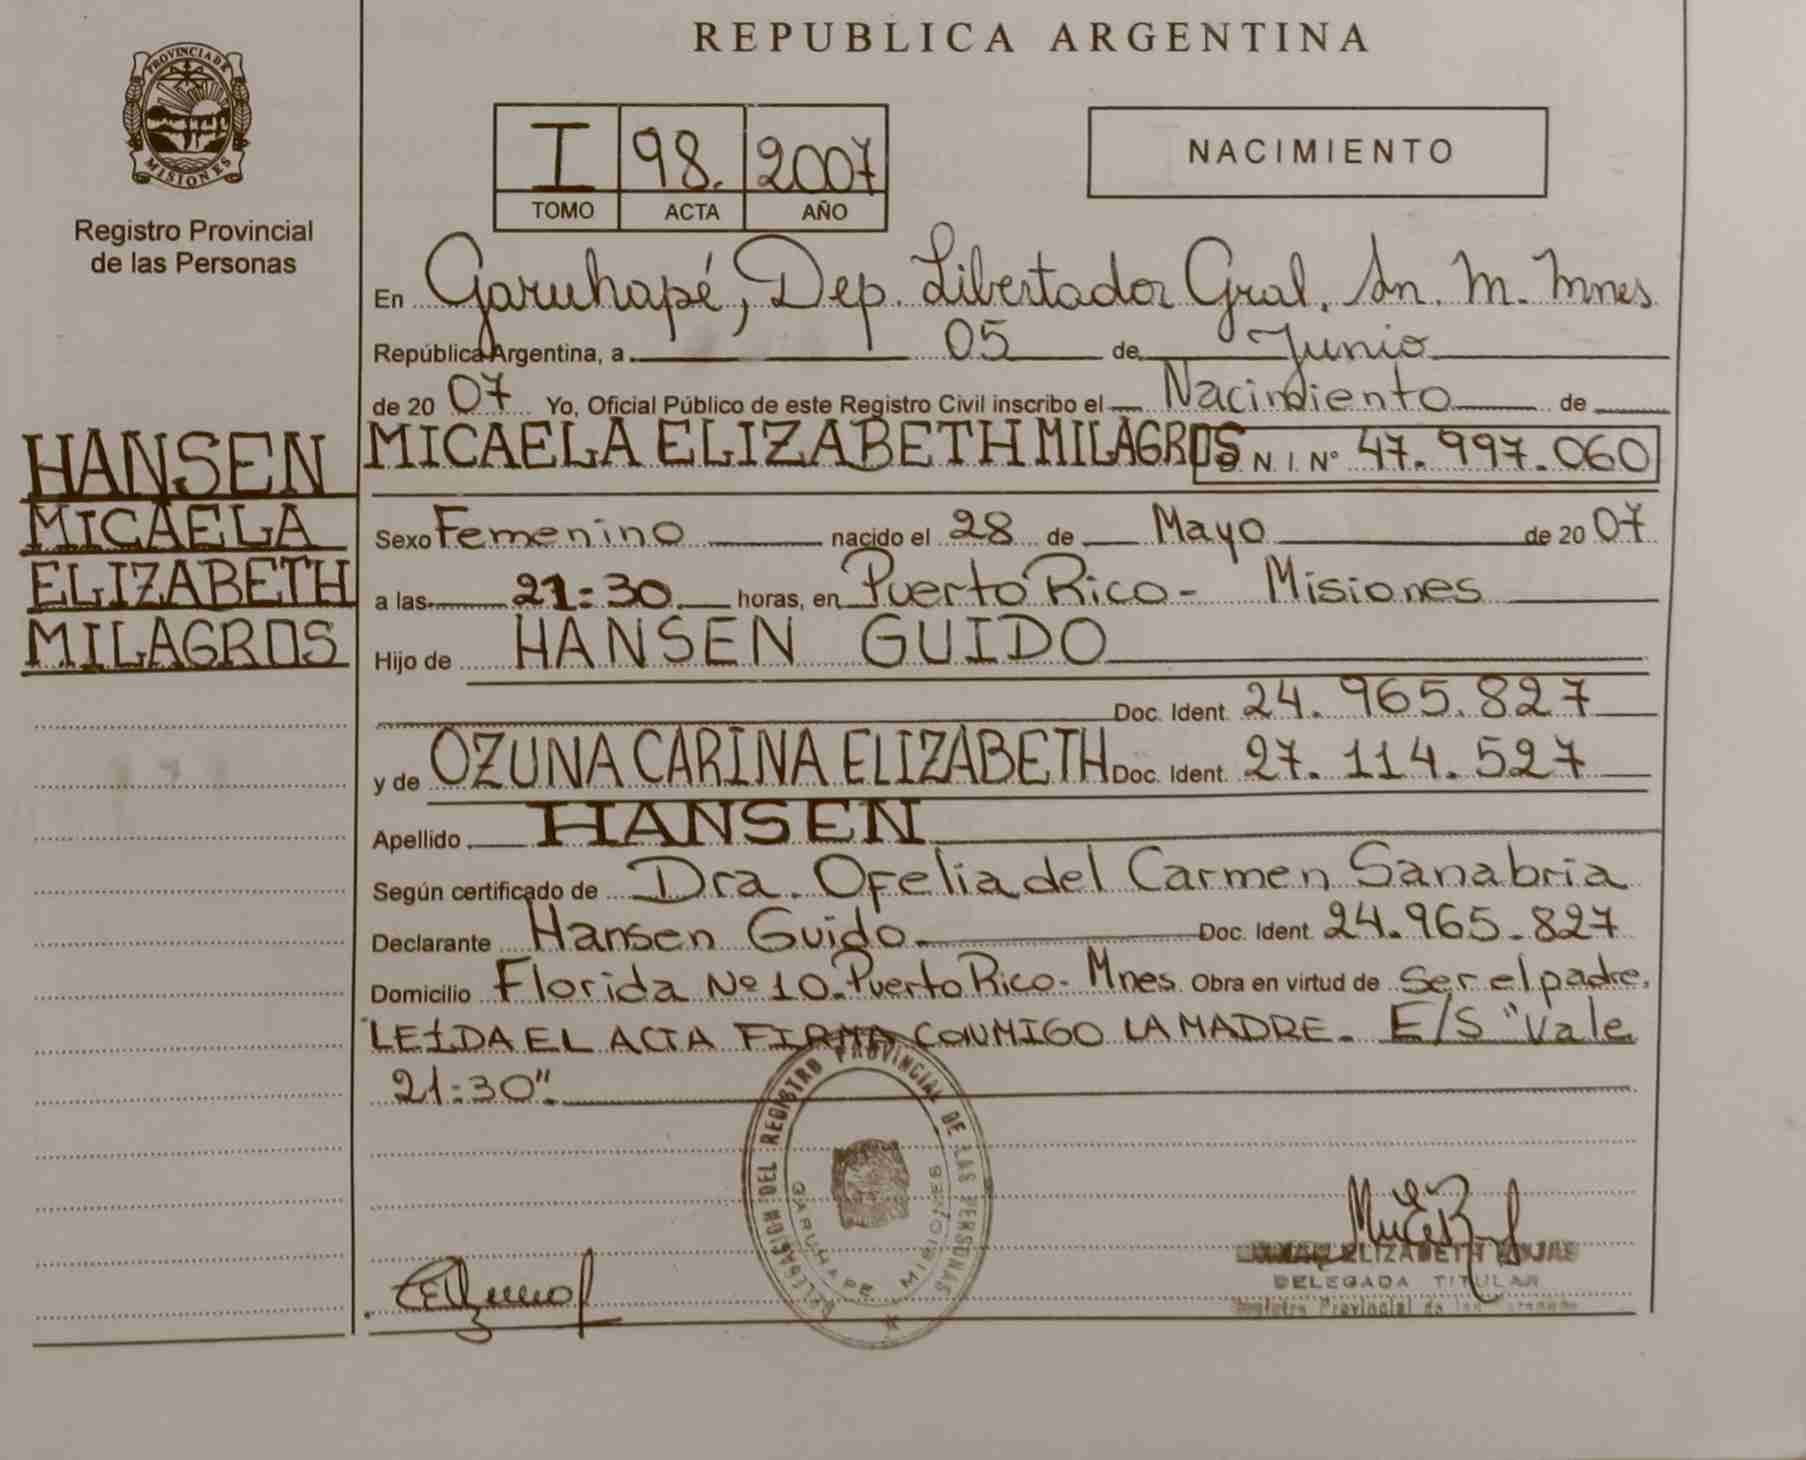 REPUBLICA ARGENTINA
PROVINCIA DE
MISIONES
Registro Provincial
de las Personas
I 98. 2007
TOMO ACTA AÑO
NACIMIENTO
En Garuhapé, Dep. Libertador Gral. Sn. M. Mnes
República Argentina, a 05 de Junio
de 20 07 Yo, Oficial Público de este Registro Civil inscribo el Nacimiento de
HANSEN
MICAELA
ELIZABETH
MILAGROS
MICAELA ELIZABETH MILAGROS N. I. Nº 47.997.060
Sexo Femenino nacido el 28 de Mayo de 20 07
a las 21:30 horas, en Puerto Rico - Misiones
Hijo de HANSEN GUIDO
Doc. Ident. 24.965.827
y de OZUNA CARINA ELIZABETH Doc. Ident. 27.114.527
Apellido HANSEN
Según certificado de Dra. Ofelia del Carmen Sanabria
Declarante Hansen Guido. Doc. Ident. 24.965.827
Domicilio Florida Nº 10. Puerto Rico - Mnes. Obra en virtud de Ser el padre.
LEÍDA EL ACTA FIRMA CONMIGO LA MADRE. E/S "Vale
21:30".
DELEGACION DEL REGISTRO PROVINCIAL DE LAS PERSONAS
GARUHAPE MISIONES
ELIZABETH ROJAS
DELEGADA TITULAR
Registro Provincial de las Personas